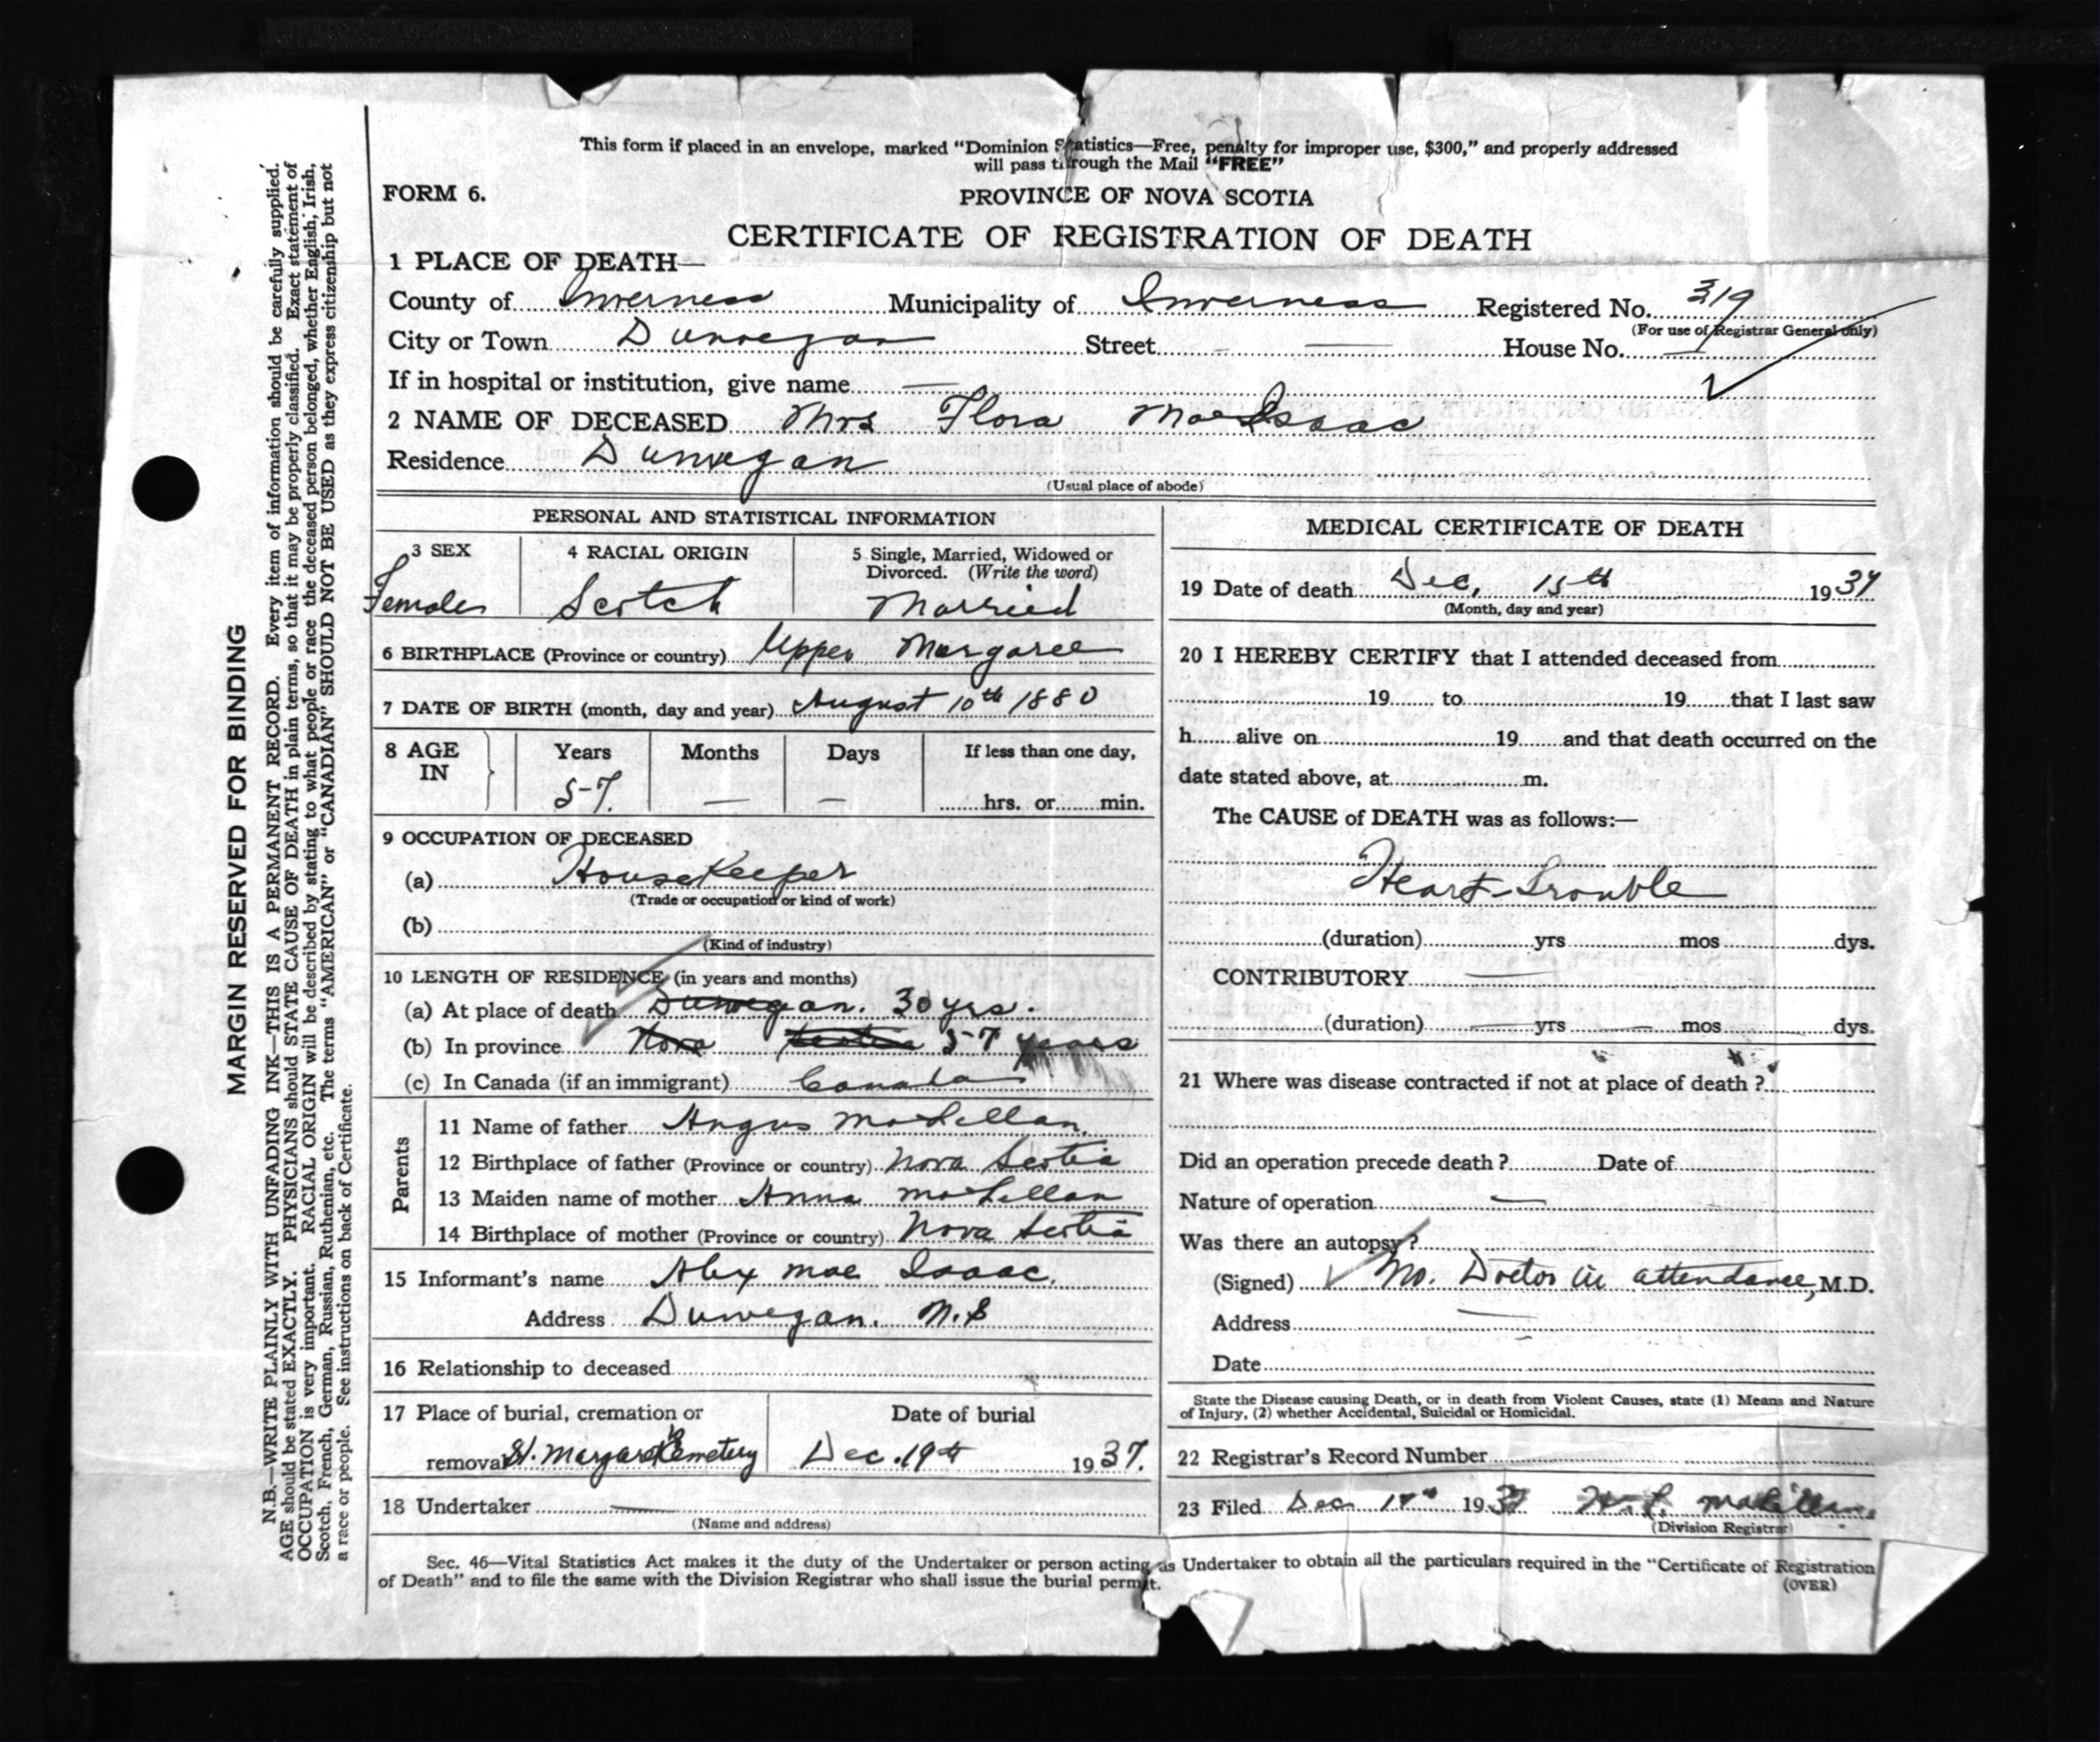 This form if placed in an envelope, marked “Dominion Statistics—Free, penalty for improper use, $300,” and properly addressed
will pass through the Mail “FREE”
FORM 6.
PROVINCE OF NOVA SCOTIA
CERTIFICATE OF REGISTRATION OF DEATH
1 PLACE OF DEATH—
County of Inverness Municipality of Inverness Registered No. 319
(For use of Registrar General only)
City or Town Dunvegan Street — House No. —
If in hospital or institution, give name —
2 NAME OF DECEASED Mrs Flora MacIsaac
Residence Dunvegan
(Usual place of abode)
PERSONAL AND STATISTICAL INFORMATION
3 SEX 4 RACIAL ORIGIN 5 Single, Married, Widowed or
Divorced. (Write the word)
Female Scotch Married
6 BIRTHPLACE (Province or country) Upper Margaree
7 DATE OF BIRTH (month, day and year) August 10th 1880
8 AGE IN Years Months Days If less than one day,
57 — — hrs. or min.
9 OCCUPATION OF DECEASED
(a) HouseKeeper
(Trade or occupation or kind of work)
(b)
(Kind of industry)
10 LENGTH OF RESIDENCE (in years and months)
(a) At place of death Dunvegan. 30 yrs.
(b) In province Nova Scotia 57 years
(c) In Canada (if an immigrant) Canada
Parents
11 Name of father Angus McLellan
12 Birthplace of father (Province or country) Nova Scotia
13 Maiden name of mother Anna McLellan
14 Birthplace of mother (Province or country) Nova Scotia
15 Informant's name Alex Mac Isaac.
Address Dunvegan. N.S
16 Relationship to deceased
17 Place of burial, cremation or Date of burial
removal St. Margaret's Cemetery Dec. 19th 1937.
18 Undertaker —
(Name and address)
MEDICAL CERTIFICATE OF DEATH
19 Date of death Dec, 15th 1937
(Month, day and year)
20 I HEREBY CERTIFY that I attended deceased from
19 to 19 that I last saw
h alive on 19 and that death occurred on the
date stated above, at m.
The CAUSE of DEATH was as follows:—
Heart-Trouble
(duration) yrs mos dys.
CONTRIBUTORY —
(duration) — yrs — mos dys.
21 Where was disease contracted if not at place of death ?
Did an operation precede death ? Date of
Nature of operation —
Was there an autopsy ?
(Signed) No. Doctor in attendance, M.D.
Address —
Date
State the Disease causing Death, or in death from Violent Causes, state (1) Means and Nature
of Injury, (2) whether Accidental, Suicidal or Homicidal.
22 Registrar's Record Number
23 Filed Dec 1937 McLellan
(Division Registrar)
Sec. 46—Vital Statistics Act makes it the duty of the Undertaker or person acting as Undertaker to obtain all the particulars required in the “Certificate of Registration
of Death” and to file the same with the Division Registrar who shall issue the burial permit.
(OVER)
MARGIN RESERVED FOR BINDING
N.B.—WRITE PLAINLY WITH UNFADING INK—THIS IS A PERMANENT RECORD. Every item of information should be carefully supplied.
AGE should be stated EXACTLY. PHYSICIANS should STATE CAUSE OF DEATH in plain terms, so that it may be properly classified. Exact statement of
OCCUPATION is very important. RACIAL ORIGIN will be described by stating to what people or race the deceased person belonged, whether English, Irish,
Scotch, French, German, Russian, Ruthenian, etc. The terms “AMERICAN” or “CANADIAN” SHOULD NOT BE USED as they express citizenship but not
a race or people. See instructions on back of Certificate.